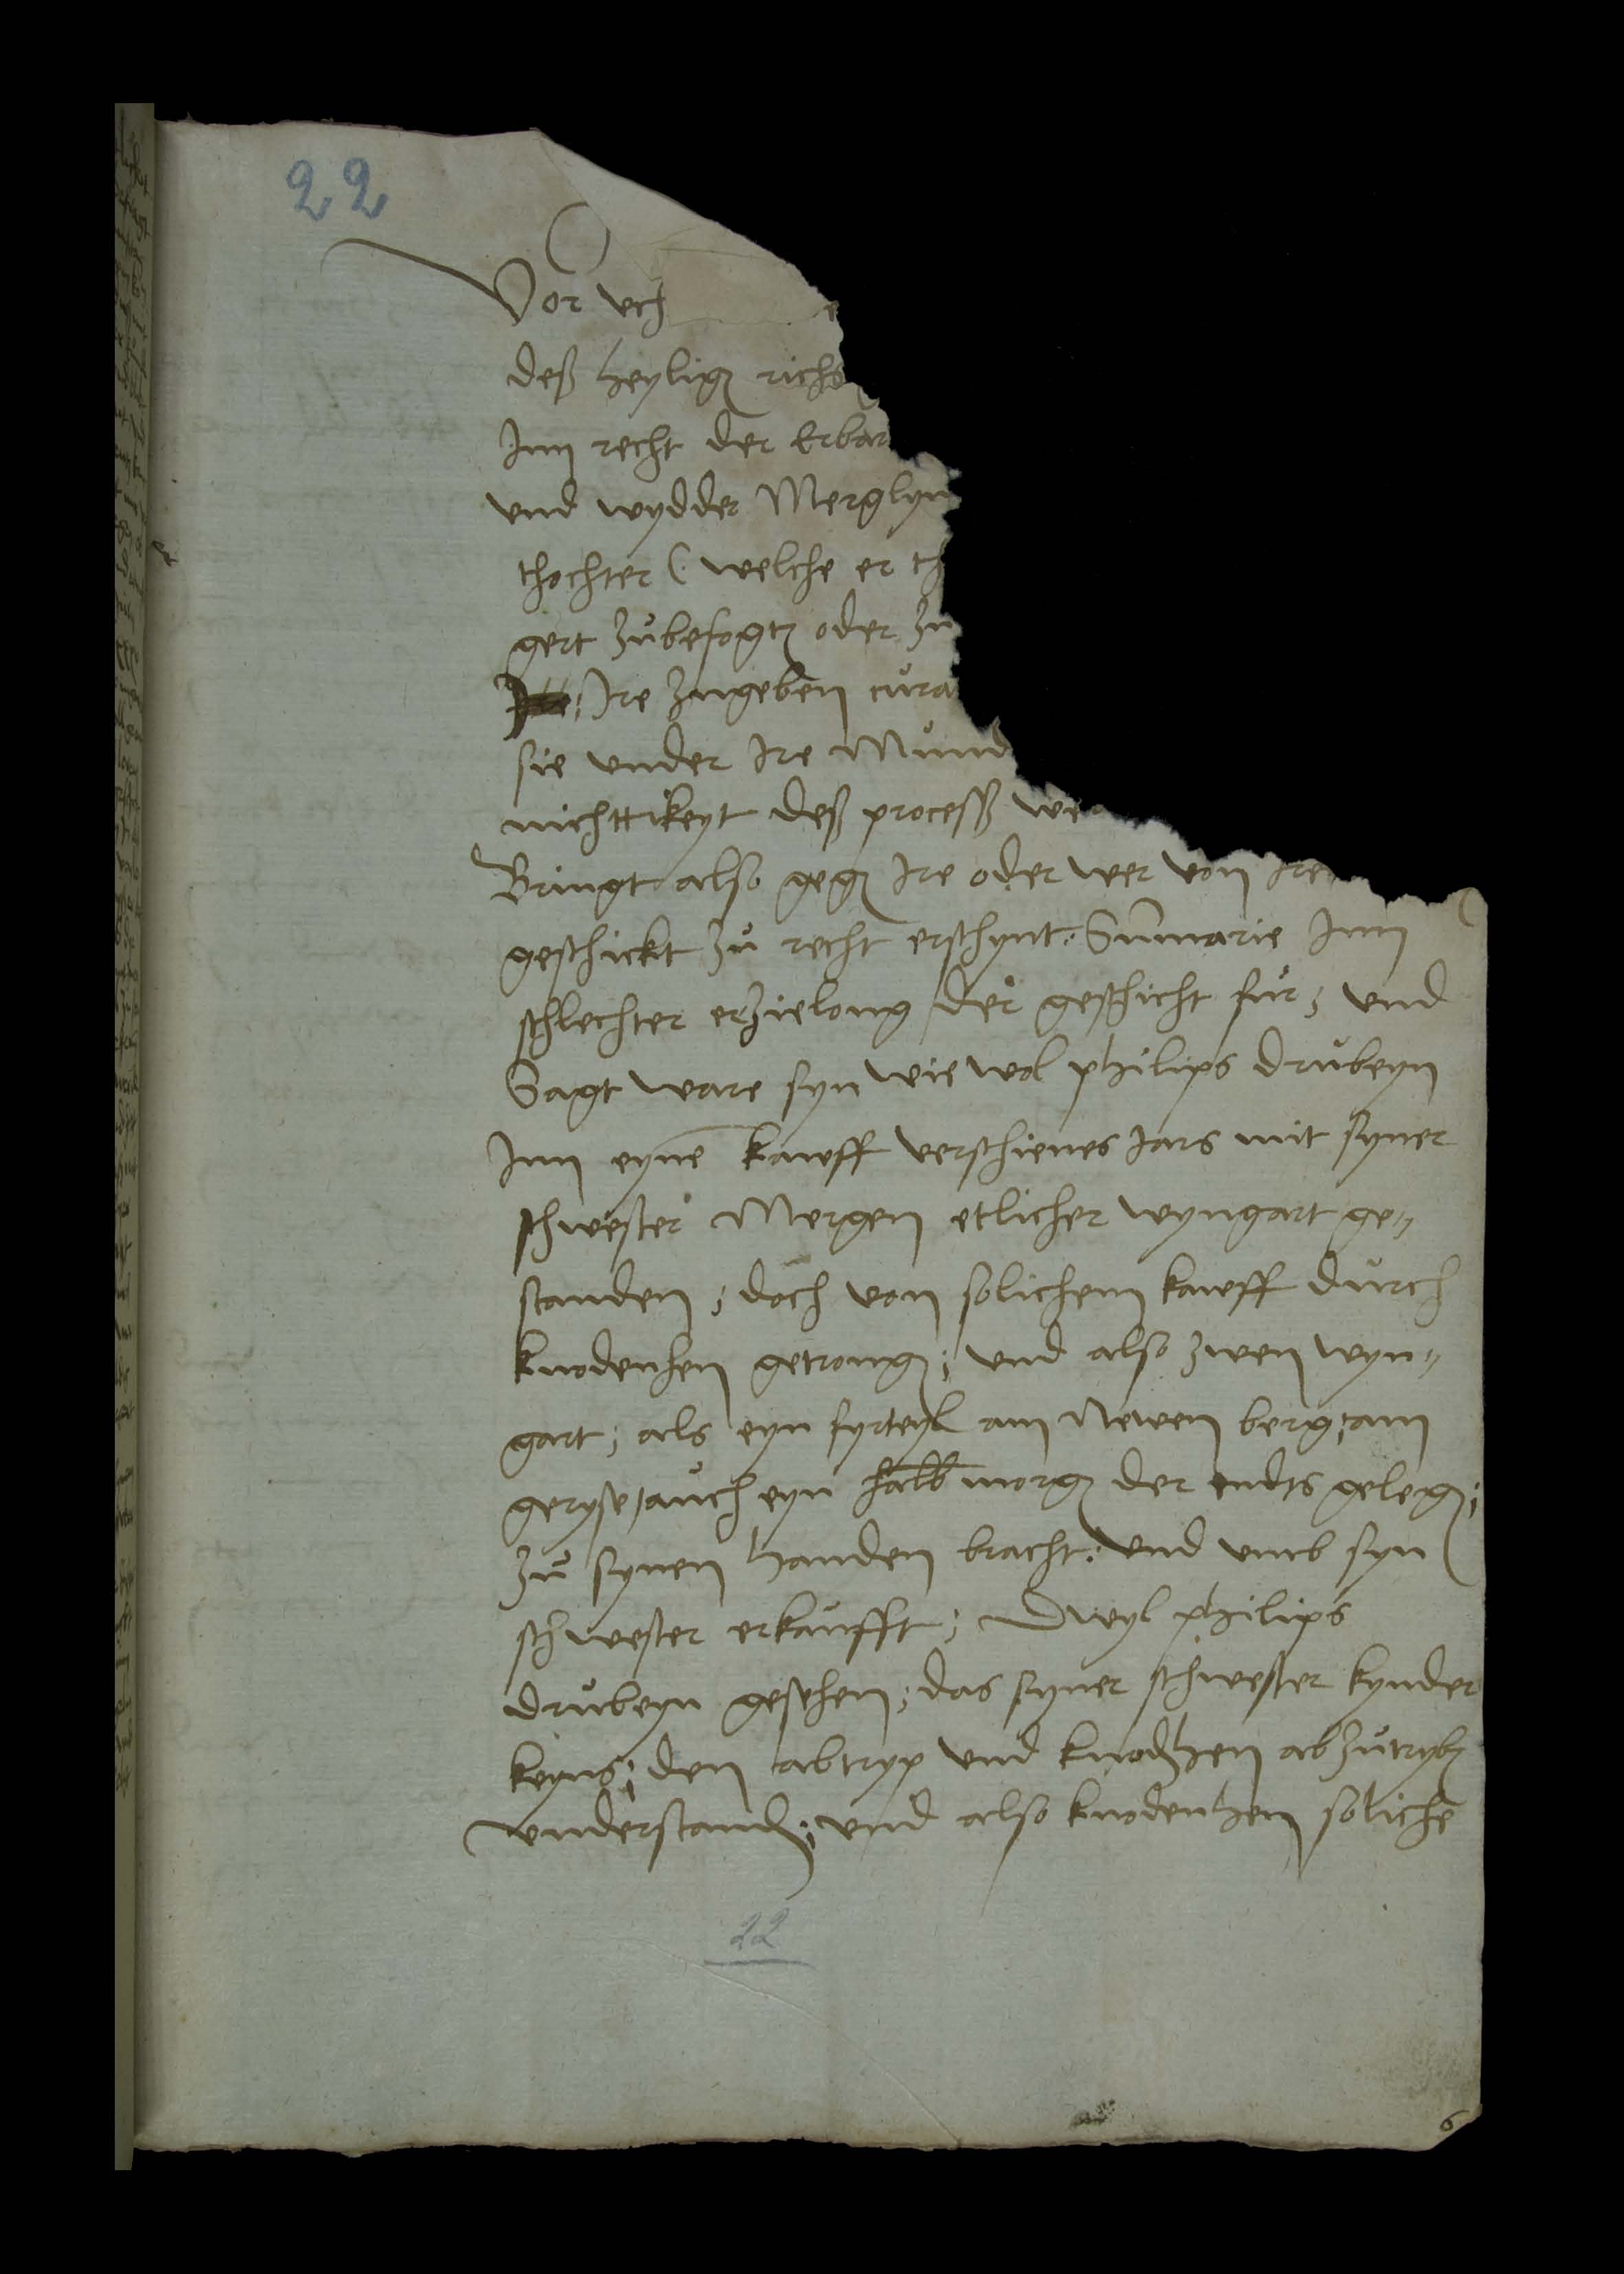 22
Vor uch
deß heylig richs
Inn recht der Erbar
und wydder Merglyn
thochter ( welche er th
gert zubefogt oder zu
Ire zugeben cura
sie under Ire Mund
nichttikeyt deß process
Bringt also geg Ire oder wer von Ire
geschickt zu recht erschynt. Sumarie Inn
schlechter erzielong der geschicht für, und
Sagt ware syn wie wol philips drubeyn
Inn eyne kauff verschienes Jars mit syner
schwester Mergen etlicher wyngart ge„
standen ; doch von solichem kauff durch
knodenhen getrong ; und also zwen wyn„
gart ; als eyn fyrteyl am Newen berg, am
geryse, auch eyn halb morg der endts geleg ;
zu synen handen bracht. und umb syn
schwester erkaufft ; Dwyl philips
drubeyn gesehen ; das syner schwester kynder
keyns ; den abtryp und knodhen abzutryb
understand ; und also knodenhen soliche
22
6